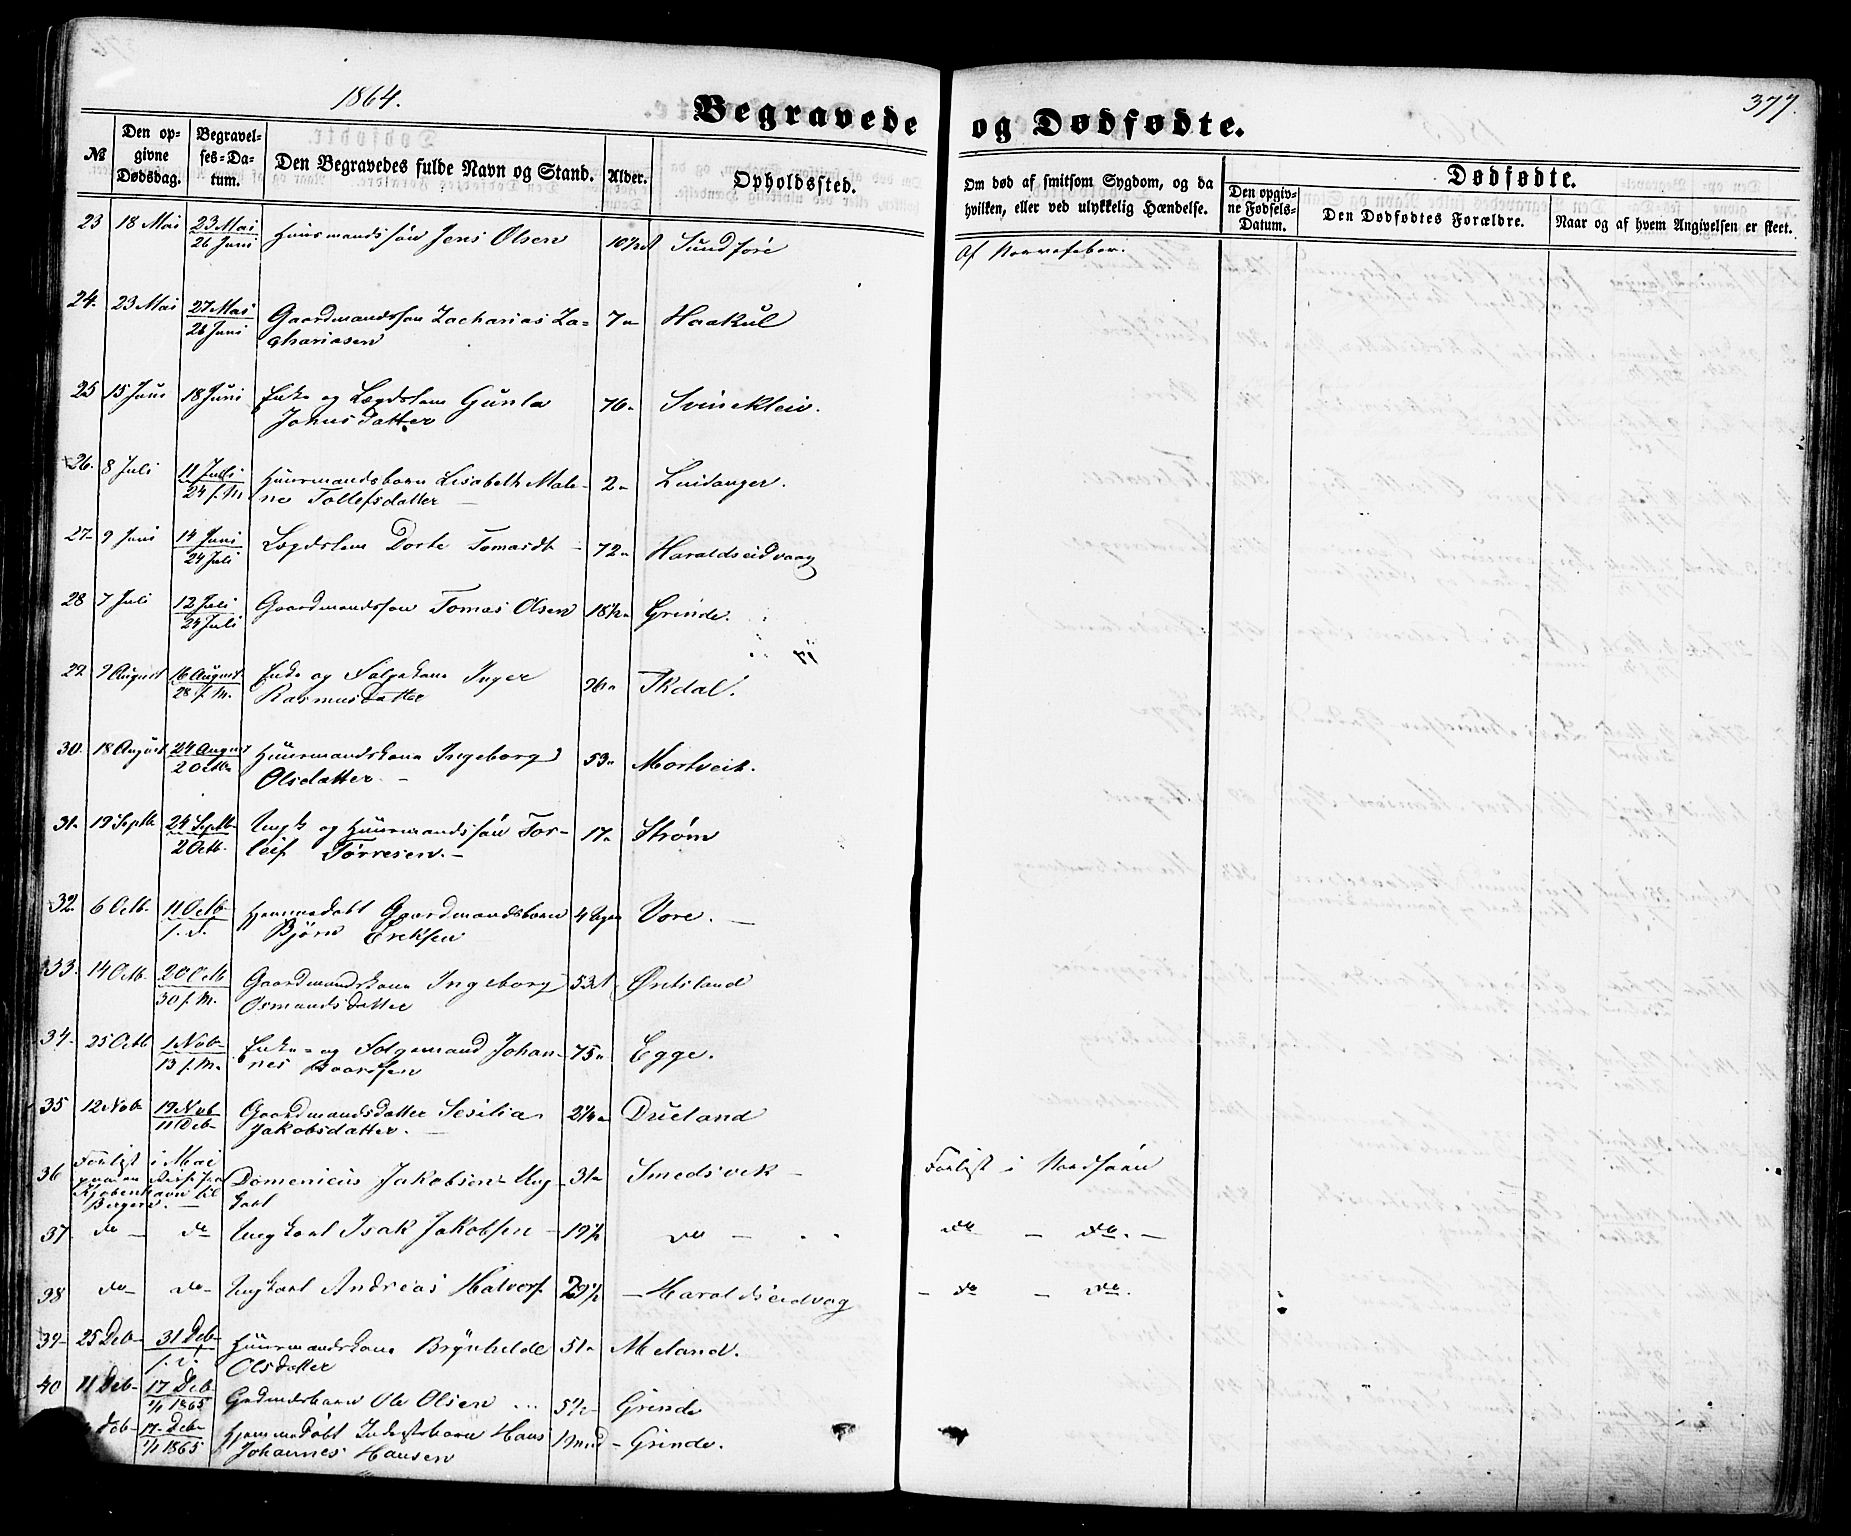 1864.
377.
Begravede og Dødfødte.
№ Den opgivne Dødsdag. Begravelses-Datum. Den Begravedes fulde Navn og Stand. Alder. Opholdssted. Om død af smitsom Sygdom, og da hvilken, eller ved ulykkelig Hændelse. Dødfødte. Den opgivne Fødsels-Datum. Den Dødfødtes Forældre. Naar og af hvem Angivelsen er skeet.
23 18 Mai 23 Mai Huusmandssøn Jens Olsen Sundføre Af Nervefeber.
26 Juni
24. 23 Mai 27 Mai Gaardmandssøn Zacharias Za- 7 Haakul
28 Juni chariasen
25 15 Juni 18 Juni Enke og Lægdslem Gunla 76 Svinekleiv.
Johnsdatter
26. 8 Juli 11 Juli Huusmandsbarn Lisabeth Male- 2 Leidanger.
24 f. M. ne Tollefsdatter
27 9 Juni 14 Juni Lægdslem Dorte Tomasdt 72 Haraldseidvaag
24 Juli
28 7 Juli 12 Juli Gaardmandssøn Tomas Olsen 18½ Grinde.
24 Juli
29 9 August 16 August Enke og Følgekone Inger 96 Ikdal.
28 f. M. Rasmusdatter
30. 18 August 24 August Huusmandskone Ingeborg 53 Mortveit.
2 Octb Olsdatter.
31. 19 Septb 24 Septb Ungk og Huusmandssøn Tor- 17 Strøm
2 Octb. leif Tørresen.
32. 6 Octb. 11 Octb Hjemmedøbt Gaardmandsbarn 4 Uger Vore.
f. d. Bjørn Ereksen
33. 14 Octb. 20 Octb Gaardmandskone Ingeborg 53 Østsland
30 f. M. Osmundsdatter
34 25 Octb 1 Nob Enke- og Følgemand Johan- 75 Egge.
13 f. M. nes Baardsen
35 12 Nob 19 Nob Gaardmandsdatter Sesilia 2¼ Dueland
11 Deb Jakobsdatter.
36 Forlist i Mai
paa en Reise fra Domenicus Jakobsen Ung- 31 Smedsvik Forlist i Nordsøen
Kjøbenhavn til karl
Bergen.
37 do do Ungkarl Isak Jakobsen 19½ do do do.
38 do do Ungkarl Andreas Halvors. 29½ Haraldseidvag do do.
39 25 Deb 31 Deb Huusmandskone Brynhilde 51 Meland.
f. d. Olsdatter
40 11 Deb 17 Deb Grdmdsbarn Ole Olsen 5½ Grinde
1/1 1865
Deb 17 Deb Hjemmedøbt Inderstsbarn Hans 1 Mnd Grinde.
1/1 1865 Johannes Hansen